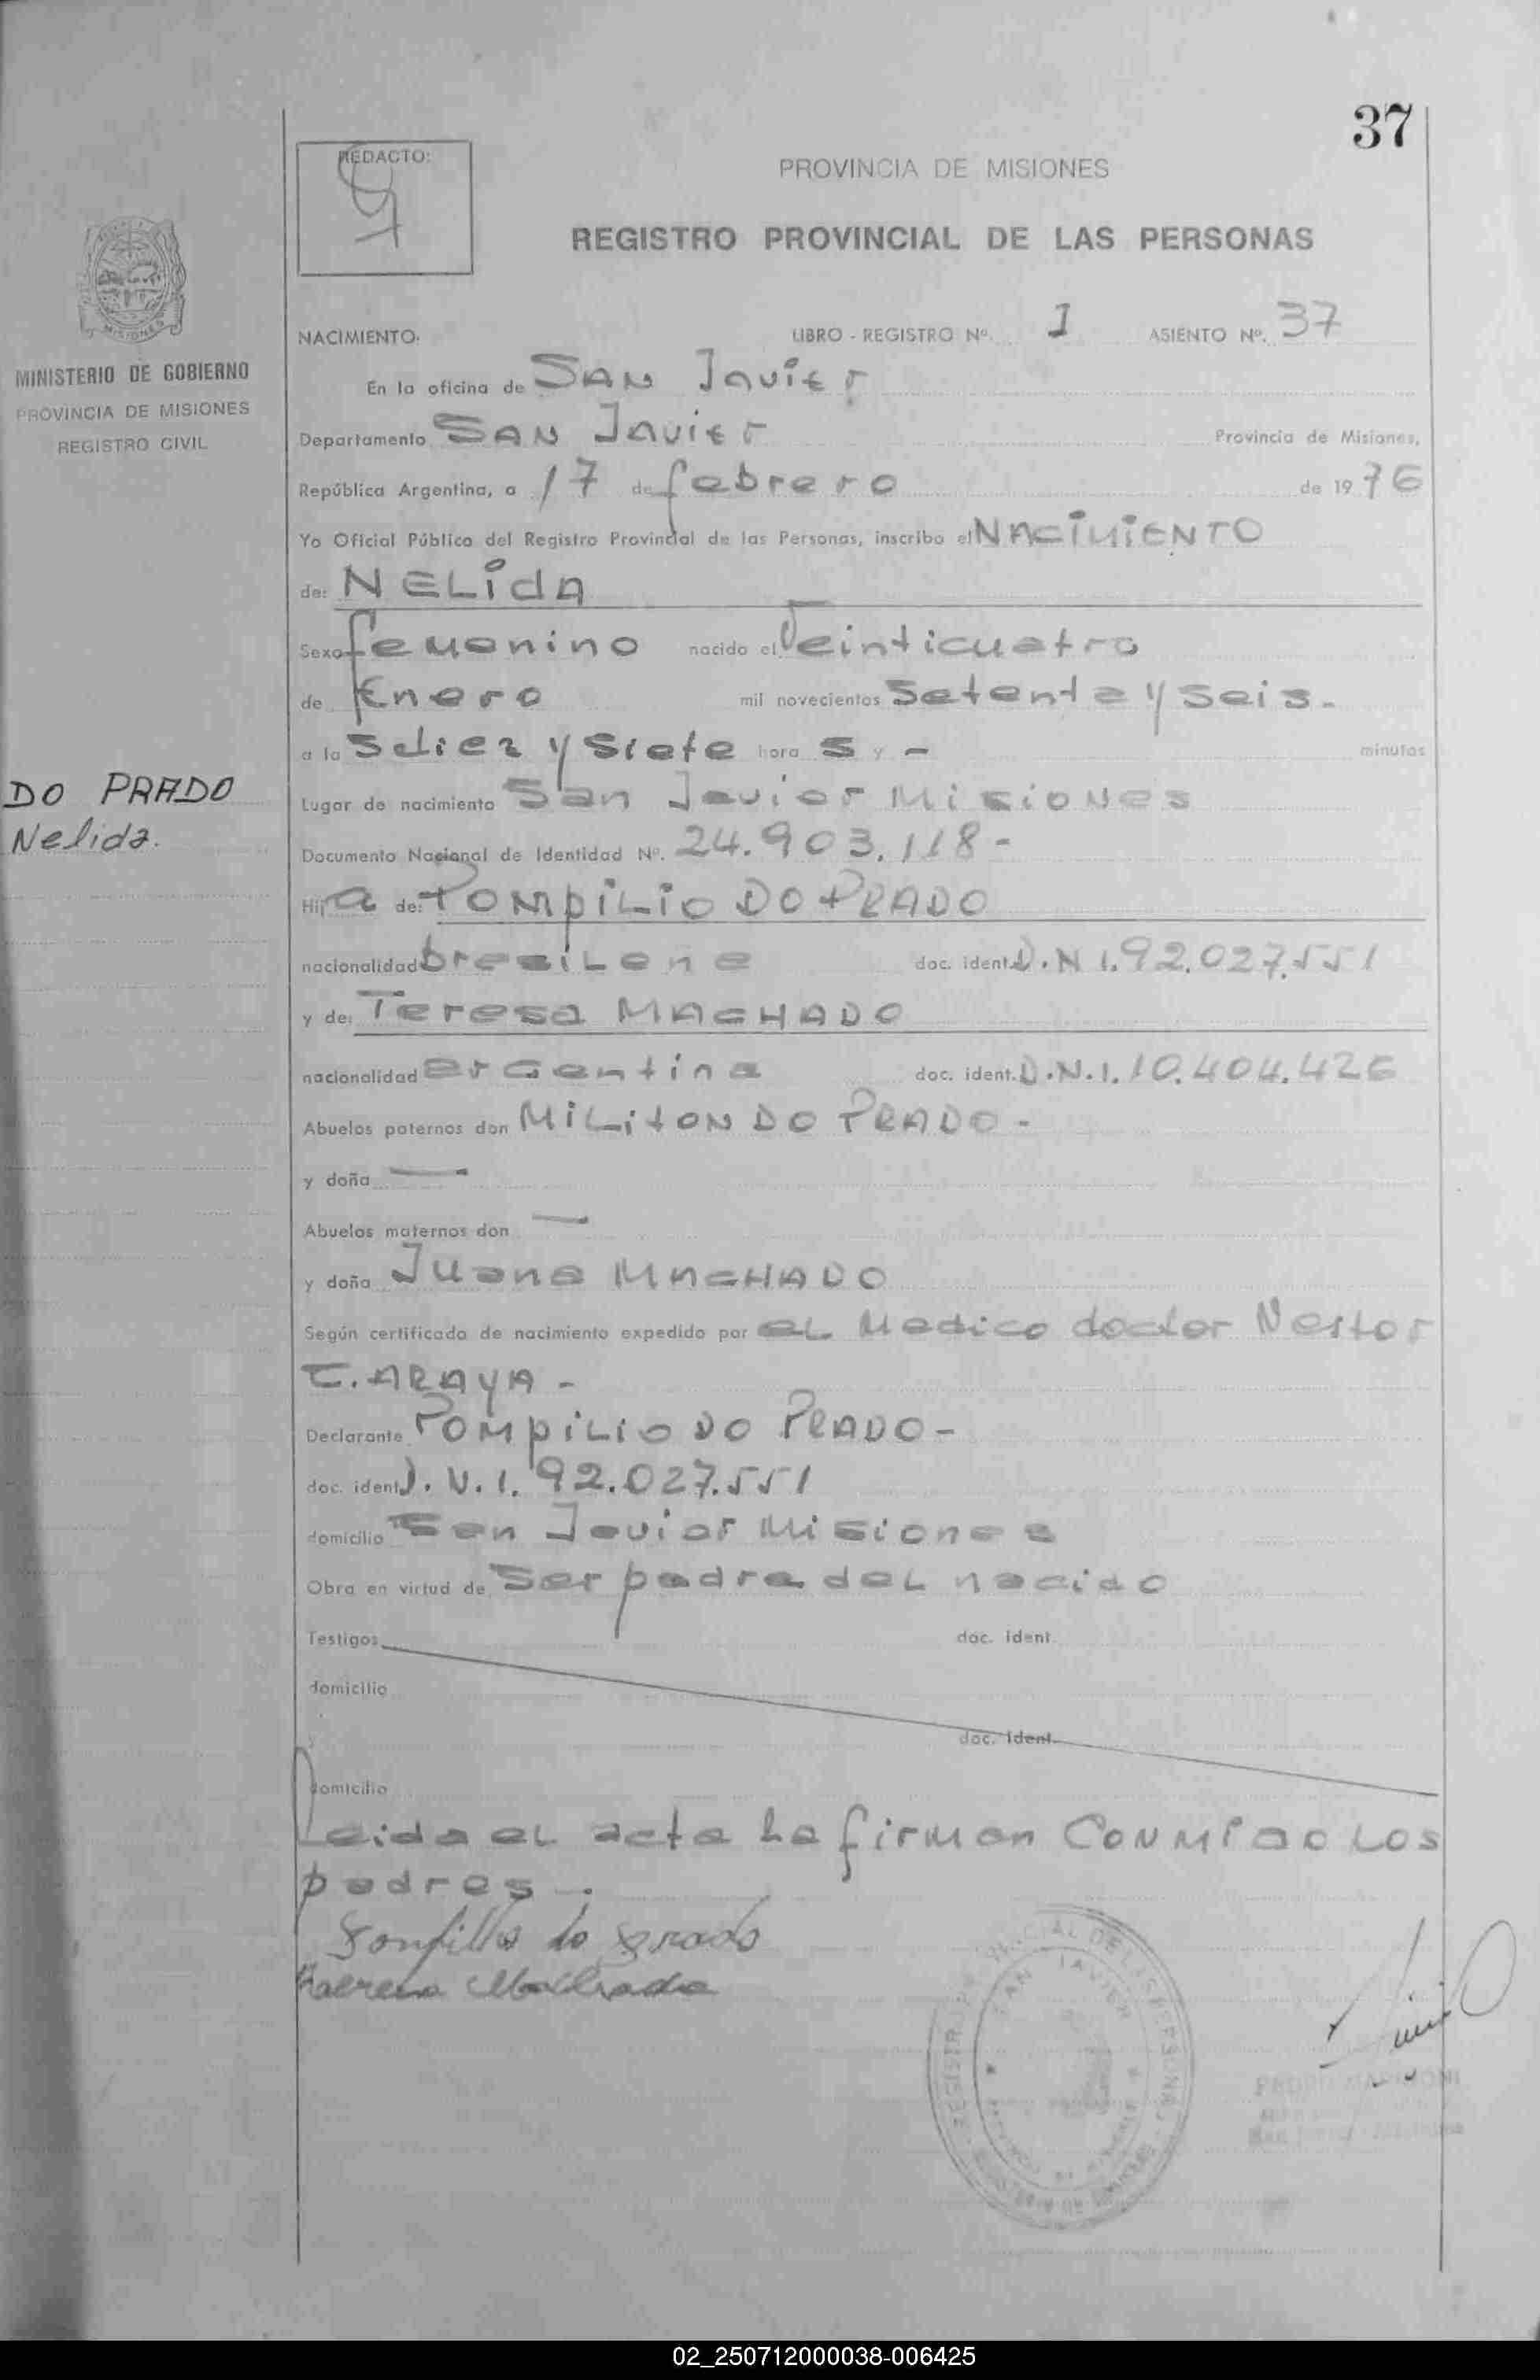 37
REDACTO:
PROVINCIA DE MISIONES
REGISTRO PROVINCIAL DE LAS PERSONAS
MISIONES
MINISTERIO DE GOBIERNO
PROVINCIA DE MISIONES
REGISTRO CIVIL
NACIMIENTO. LIBRO - REGISTRO Nº. 1 ASIENTO Nº. 37
En la oficina de SAN Javier
Departamento SAN Javier Provincia de Misiones,
República Argentina, a 17 de febrero de 1976
Yo Oficial Público del Registro Provincial de las Personas, inscribo el NACIMIENTO
de: NELidA
Sexo femenino nacido el Veinticuatro
de Enero mil novecientos Setenta y Seis.
a la S diez y Siete hora S y -
minutos
DO PRADO
Nelida.
Lugar de nacimiento San Javier Misiones
Documento Nacional de Identidad Nº. 24.903.118-
Hija de: POMpiLio DO PRADO
nacionalidad brasiLena doc. ident. D.N I.92.027.551
y de: Teresa MACHADO
nacionalidad argentina doc. ident. D.N.I.10.404.426
Abuelos paternos don MiLitON DO PRADO -
y doña —
Abuelos maternos don —
y doña Juana MACHADO
Según certificado de nacimiento expedido por eL Medico doctor Nestor
C. ARAYA -
Declarante POMpiLio DO PRADO -
doc. ident D.N.I. 92.027.551
domicilio San Javier Misiones
Obra en virtud de Ser padre deL nacido
Testigos doc. ident.
domicilio
doc. ident.
domicilio
Leida eL acta La firman CONMIGO LOS
padres -.
do prado
Machado
SAN JAVIER